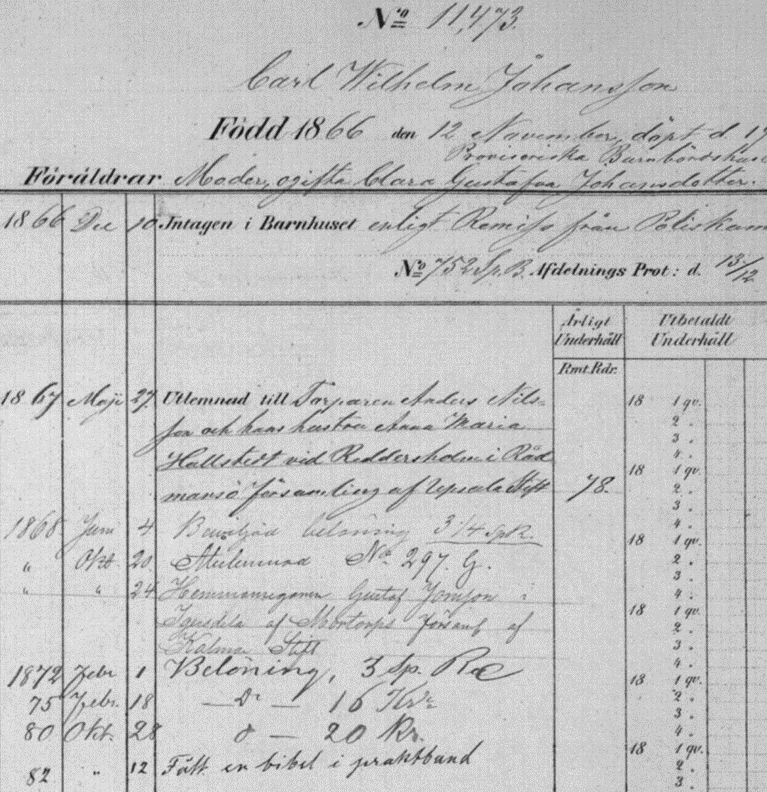 No 11,473.
Carl Wilhelm Johansson
Född 1866 den 12 November, döpt d. 19
Provisoriska Barnbördshuset
Föräldrar Moder, ogifta Clara Gustafva Johansdotter.
1866 Dec 10 Intagen i Barnhuset enligt Remiss från Poliskam
No 752 Sp. B. Afdelnings Prot: d. 13/12
Årligt Underhåll
Utbetaldt Underhåll
Rmt Rdr.
1867 Maji 27. Utlemnad till Torparen Anders Nils-
son och hans hustru Anna Maria
Hallstedt vid Reddersholm i Råd
mansö församling af Upsala Stift 78.
1868 Juni 4 beloning 3 1/4 SpR.
" Okt 20 No 297 G.
" " 24 Hemmansegaren Gustaf Jonsson i
af Mortorps Församl af
Kalmar Stift
1872 Febr 1 Belöning, 3 Sp. Rd
75 Febr. 18 — Do — 16 Kr.
80 Okt. 28 — 20 Kr.
82 " 12 Fått en bibel i praktband
18 1 qv.
2 .
3 .
4 .
18 1 qv.
2 .
3 .
4 .
18 1 qv.
2 .
3 .
4 .
18 1 qv.
2 .
3 .
4 .
18 1 qv.
2 .
3 .
4 .
18 1 qv.
2 .
3 .